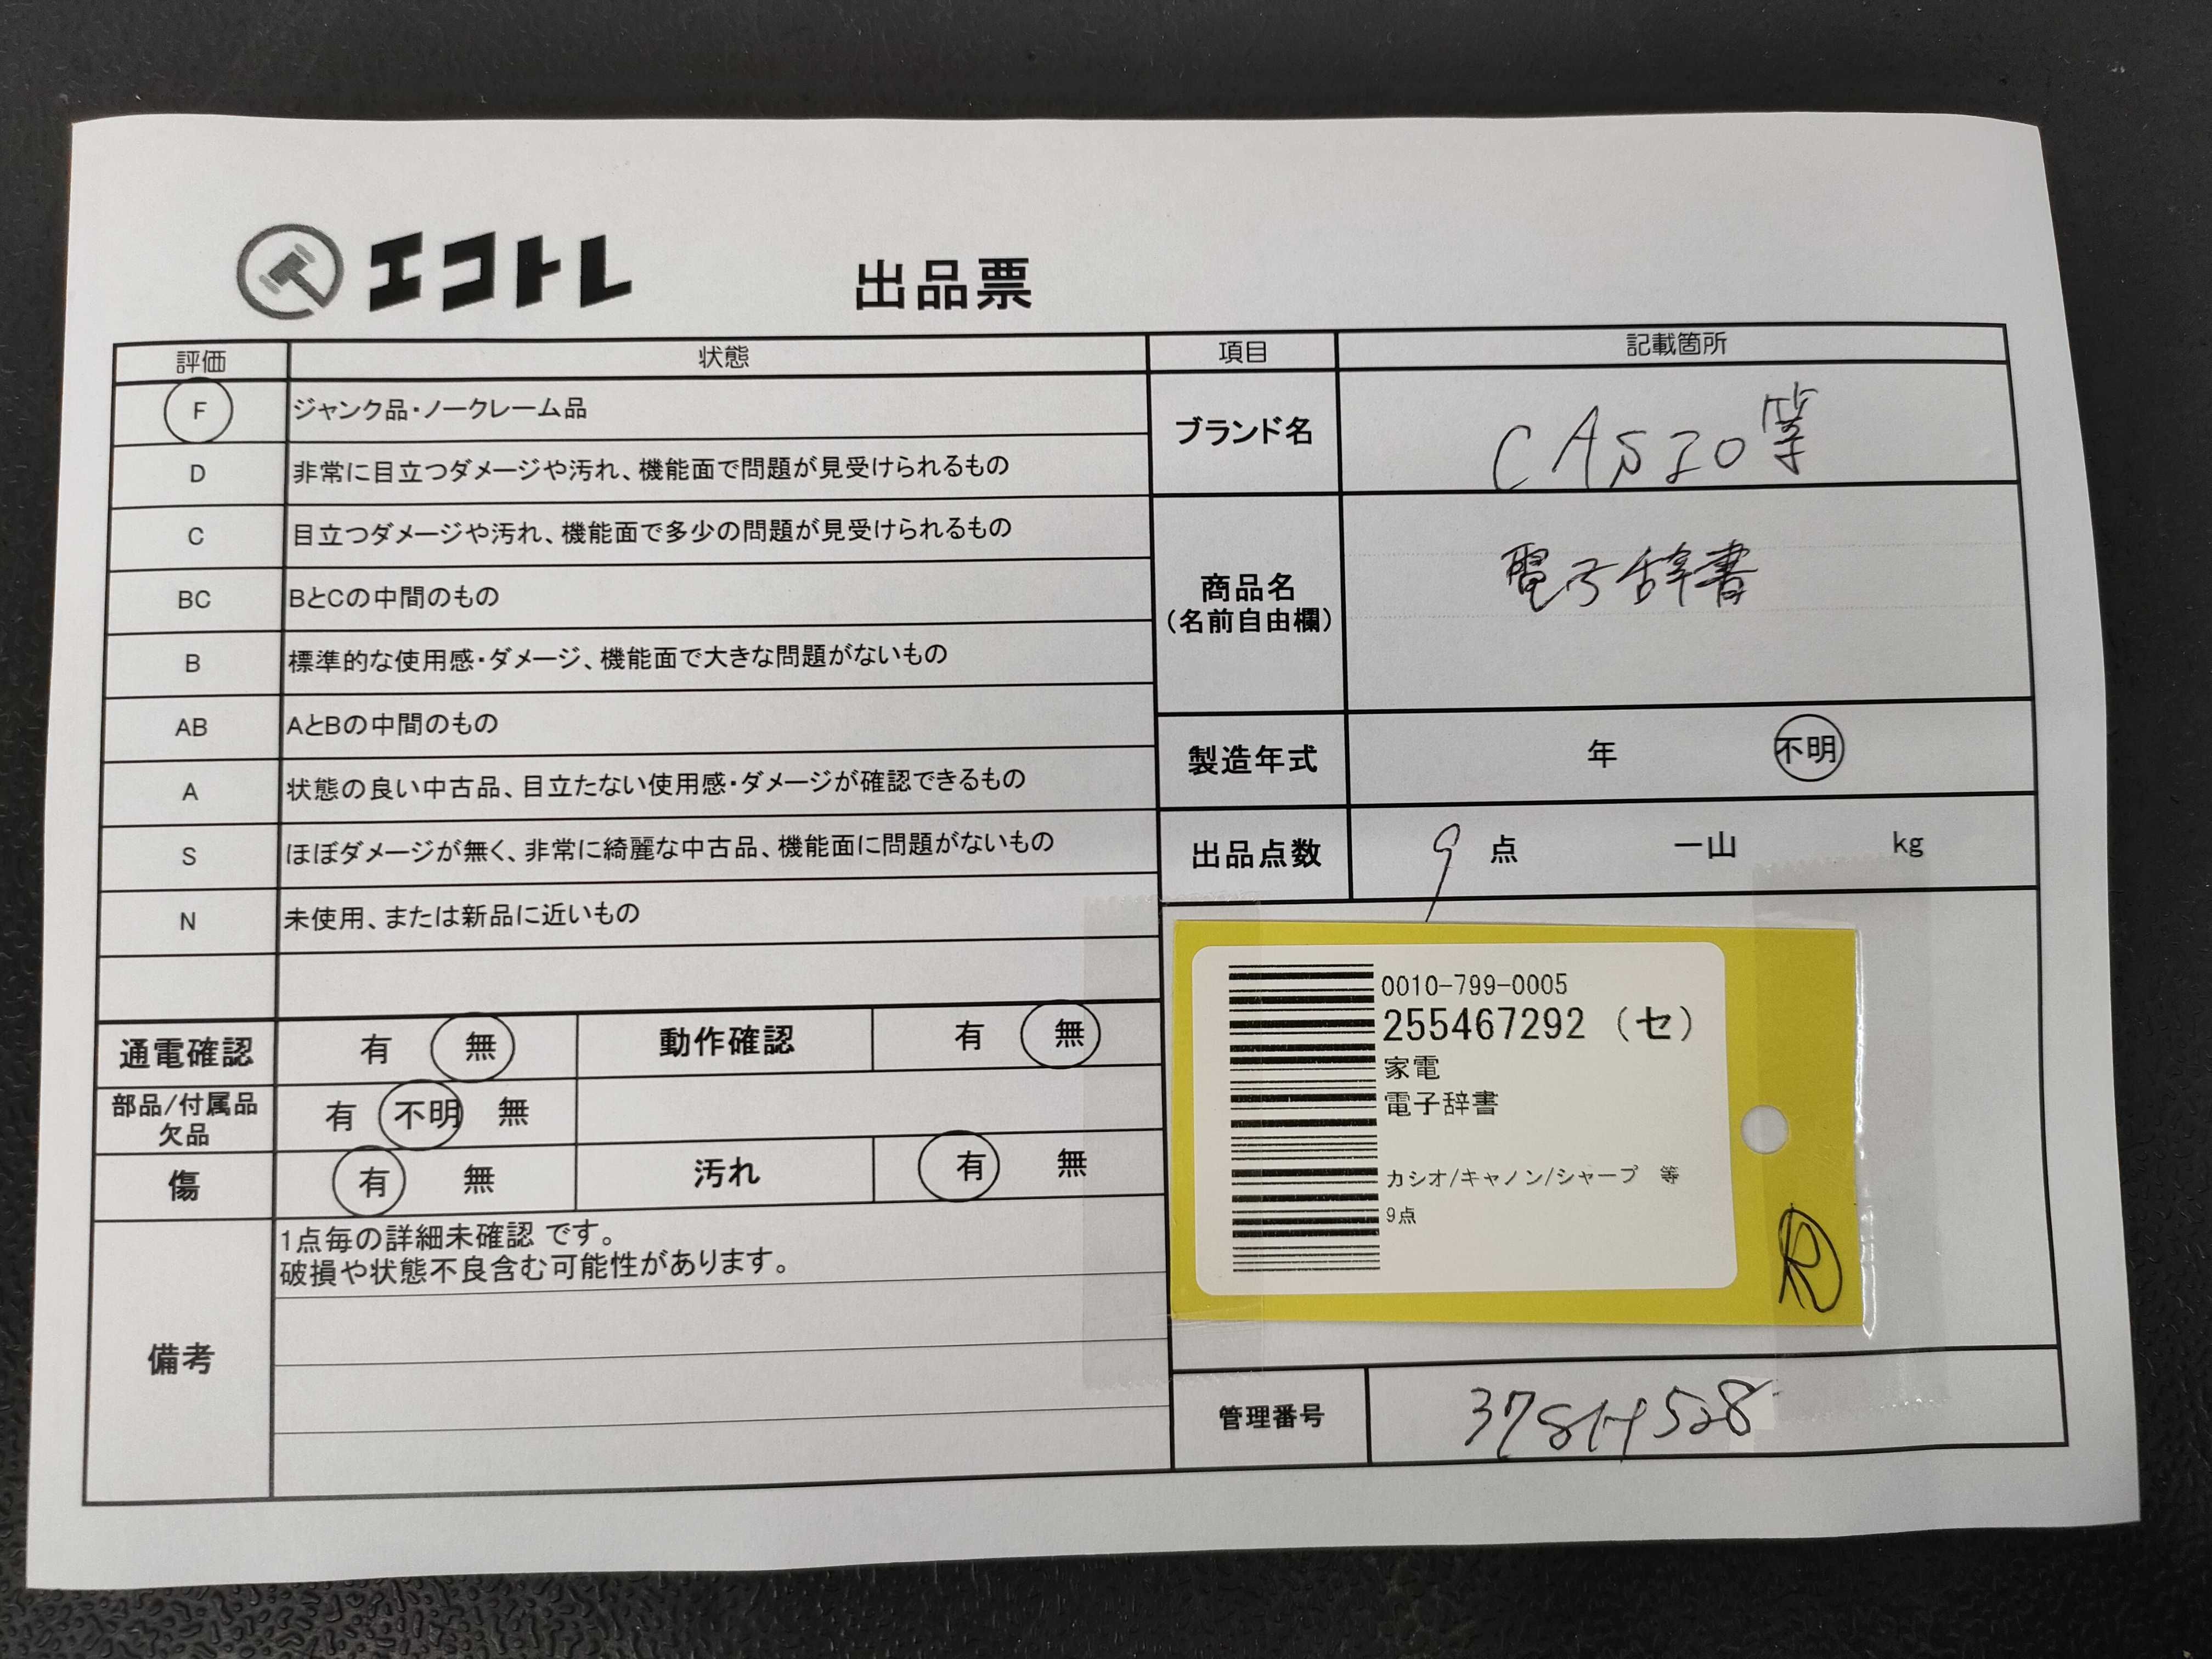 エコトレ
出品票
評価 状態
F ジャンク品・ノークレーム品
D 非常に目立つダメージや汚れ、機能面で問題が見受けられるもの
C 目立つダメージや汚れ、機能面で多少の問題が見受けられるもの
BC BとCの中間のもの
B 標準的な使用感・ダメージ、機能面で大きな問題がないもの
AB AとBの中間のもの
A 状態の良い中古品、目立たない使用感・ダメージが確認できるもの
S ほぼダメージが無く、非常に綺麗な中古品、機能面に問題がないもの
N 未使用、または新品に近いもの
通電確認 有 無 動作確認 有 無
部品/付属品
欠品
有 不明 無
傷 有 無 汚れ 有 無
備考
1点毎の詳細未確認 です。
破損や状態不良含む可能性があります。
項目 記載箇所
ブランド名 CASIO等
商品名
(名前自由欄)
電子辞書
製造年式 年 不明
出品点数 9 点 一山 kg
0010-799-0005
255467292 (セ)
家電
電子辞書
カシオ/キャノン/シャープ 等
9点
管理番号